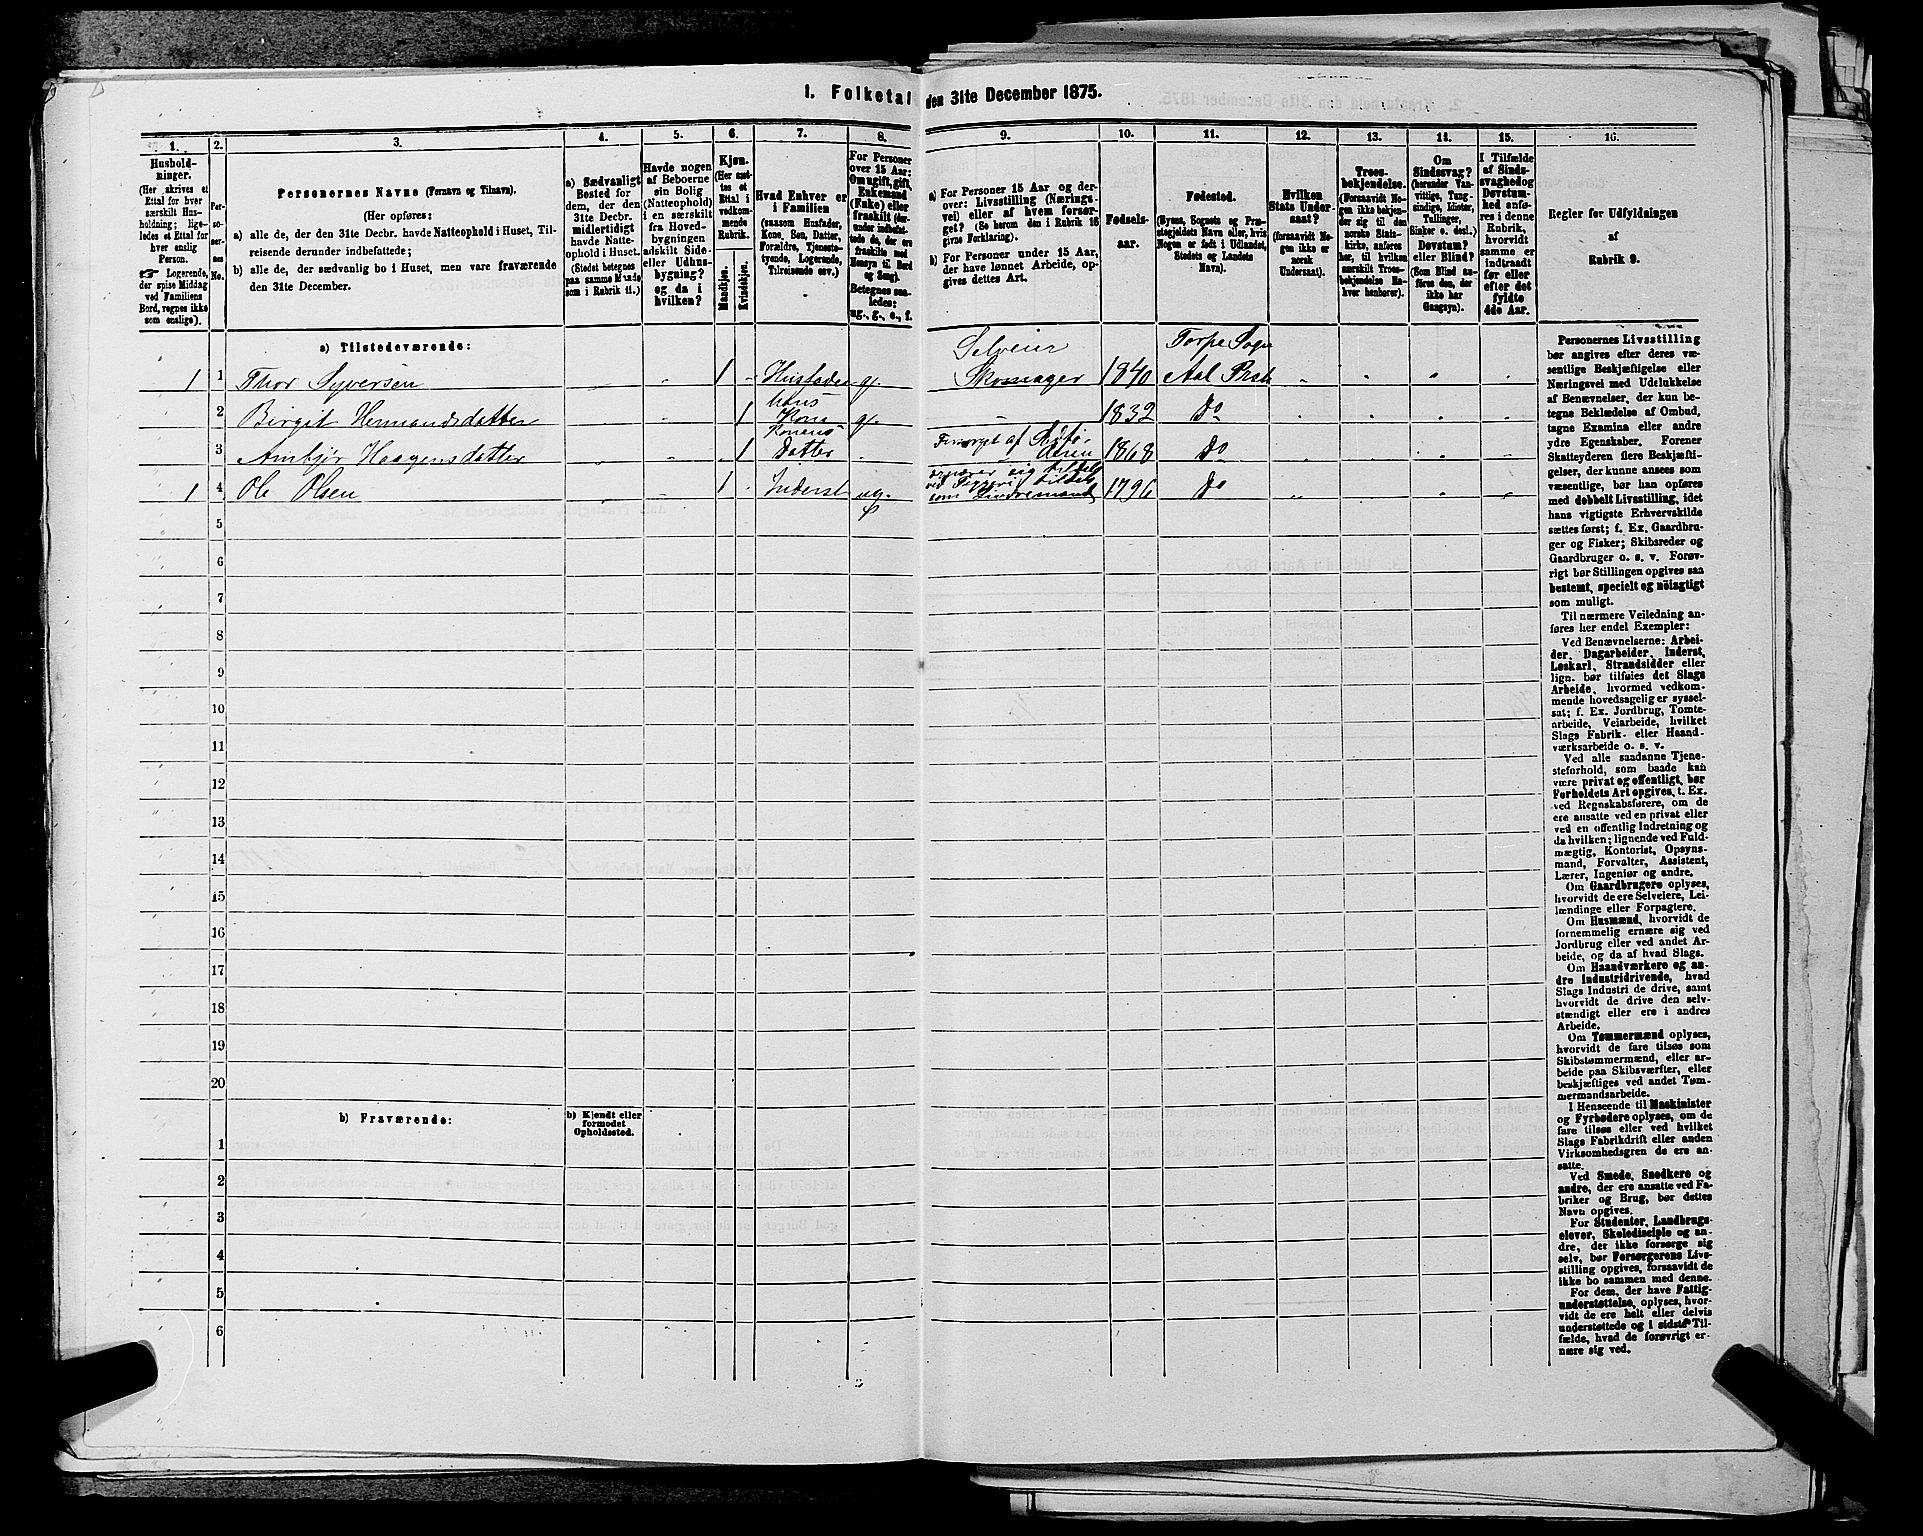 1. Folketal den 31te December 1875.
1. 2. 3. 4. 5. 6. 7. 8. 9. 10. 11. 12. 13. 14. 15. 16.
Hushold-
ninger.
(Her skrives et
Ettal for hver
særskilt Hus-
holdning; lige-
ledes et Ettal for
hver enslig
Person.
☞ Logerende,
der spise Middag
ved Familiens
Bord, regnes ikke
som enslige).
Per-
so-
ner-
nes
No.
Personernes Navne (Fornavn og Tilnavn).
(Her opføres:
a) alle de, der den 31te Decbr. havde Natteophold i Huset, Til-
reisende derunder indbefattede;
b) alle de, der sædvanlig bo i Huset, men vare fraværende
den 31te December.
a) Sædvanligt
Bosted for
dem, der den
31te Decbr.
midlertidigt
havde Natte-
ophold i Huset.
(Stedet betegnes
paa samme Maade
som i Rubrik 11.)
Havde nogen
af Beboerne
sin Bolig
(Natteophold)
i en særskilt
fra Hoved-
bygningen
adskilt Side-
eller Udhus-
bygning?
og da i
hvilken?
Kjøn.
(Her sæt-
tes et
Ettal i
vedkom-
mende
Rubrik.
Mandkjøn.
Kvindekjøn.
Hvad Enhver er
i Familien
(saasom Husfader,
Kone, Søn, Datter,
Forældre, Tjeneste-
tyende, Logerende,
Tilreisende osv.)
For Personer
over 15 Aar:
Om ugift, gift,
Enkemand
(Enke) eller
fraskilt (der-
under indbefat-
tede de, der ere
fraskilte med
Hensyn til Bord
og Seng).
Betegnes saa-
ledes:
ug., g., e., f.
a) For Personer 15 Aar og der-
over: Livsstilling (Nærings-
vei) eller af hvem forsør-
get? (Se herom den i Rubrik 16
givne Forklaring).
b) For Personer under 15 Aar,
der have lønnet Arbeide, op-
gives dettes Art.
Fødsels-
aar.
Fødested.
(Byens, Sognets og Præ-
stegjeldets Navn eller, hvis
Nogen er født i Udlandet,
Stedets og Landets
Navn).
Hvilken
Stats Under-
saat?
(forsaavidt No-
gen ikke er
norsk
Undersaat).
Troes-
bekjendelse.
(Forsaavidt No-
gen ikke bekjen-
der sig til den
norske Stats-
kirke, anføres
her, til hvilken
særskilt Troes-
bekjendelse En-
hver henhører).
Om
Sindssvag?
(herunder Van-
vittige, Tung-
sindige, Idioter,
Tullinger,
Sinker o. desl.)
Døvstum?
eller Blind?
(Som Blind an-
føres den, der
ikke har
Gangsyn).
I Tilfælde
af Sinds-
svaghed og
Døvstum-
hed anfø-
res i denne
Rubrik,
hvorvidt
samme er
indtraadt
før eller
efter det
fyldte
4de Aar.
Regler for Udfyldningen
af
Rubrik 9.
a) Tilstedeværende:
1 1 Thor Syversen 1 Husfader g. Selveier Skomager 1840 Torpe Sogn Aal Prstg
2 Birgit Hermandsdatter 1 hans Kone g. 1832 Do
3 Ambjør Haagensdatter 1 Konens Datter Forsørget af Stedfo- 1868 Do
1 4 Ole Olsen 1 Inderst ug. ernærer sig tildels ved tildels som 1796 Do
5
6
7
8
9
10
11
12
13
14
15
16
17
18
19
20
b) Fraværende:
b) Kjendt eller
formodet
Opholdssted.
1
2
3
4
5
6
Personernes Livsstilling
bør angives efter deres væ-
sentlige Beskjæftigelse eller
Næringsvei med Udelukkelse
af Benævnelser, der kun be-
tegne Beklædelse af Ombud,
tagne Examina eller andre
ydre Egenskaber. Forener
Skatteyderen flere Beskjæfti-
gelser, der kunne ansees som
væsentlige, bør han opføres
med dobbelt Livsstilling, idet
hans vigtigste Erhvervskilde
sættes først; f. Ex. Gaardbru-
ger og Fisker; Skibsreder og
Gaardbruger o. s. v. Forøv-
rigt bør Stillingen opgives saa
bestemt, specielt og nöiagtigt
som muligt.
Til nærmere Veiledning an-
føres her endel Exempler:
Ved Benævnelserne: Arbei-
der, Dagarbeider, Inderst,
Løskarl, Strandsidder eller
lign. bør tilføies det Slags
Arbeide, hvormed vedkom-
mende hovedsagelig er syssel-
sat; f. Ex. Jordbrug, Tomte-
arbeide, Veiarbeide, hvilket
Slags Fabrik- eller Haand-
værksarbeide o. s. v.
Ved alle saadanne Tjene-
steforhold, som baade kan
være privat og offentligt, bør
Forholdets Art opgives, t. Ex.
ved Regnskabsførere, om de
ere ansatte ved en privat eller
ved en offentlig Indretning og
da hvilken; lignende ved Fuld-
mægtig, Kontorist, Opsyns-
mand, Forvalter, Assistent,
Lærer, Ingeniør og andre.
Om Gaardbrugere oplyses,
hvorvidt de ere Selveiere, Lei-
lændinge eller Forpagtere.
Om Husmænd, hvorvidt de
fornemmelig ernære sig ved
Jordbrug eller ved andet Ar-
beide, og da af hvad Slags.
Om Haandværkere og an-
dre Industridrivende, hvad
Slags Industri de drive, samt
hvorvidt de drive den selv-
stændigt eller ere i andres
Arbeide.
Om Tømmermænd oplyses,
hvorvidt de fare tilsøs som
Skibstømmermænd, eller ar-
beide paa Skibsværfter, eller
beskjæftiges ved andet Tøm-
mermandsarbeide.
I Henseende til Maskinister
og Fyrbødere oplyses, om de
fare tilsøs eller ved hvilket
Slags Fabrikdrift eller anden
Virksomhedsgren de ere an-
satte.
Ved Smede, Snedkere og
andre, der ere ansatte ved Fa-
briker og Brug, bør dettes
Navn opgives.
For Studenter, Landbrugs-
elever, Skoledisciple og an-
dre, der ikke forsørge sig
selv, bør Forsørgerens Livs-
stilling opgives, forsaavidt de
ikke bo sammen med denne.
For dem, der have Fattig-
understøttelse, oplyses, hvor-
vidt de ere helt eller delvis
understøttede og i sidste Til-
fælde, hvad de forøvrigt er-
nære sig ved.